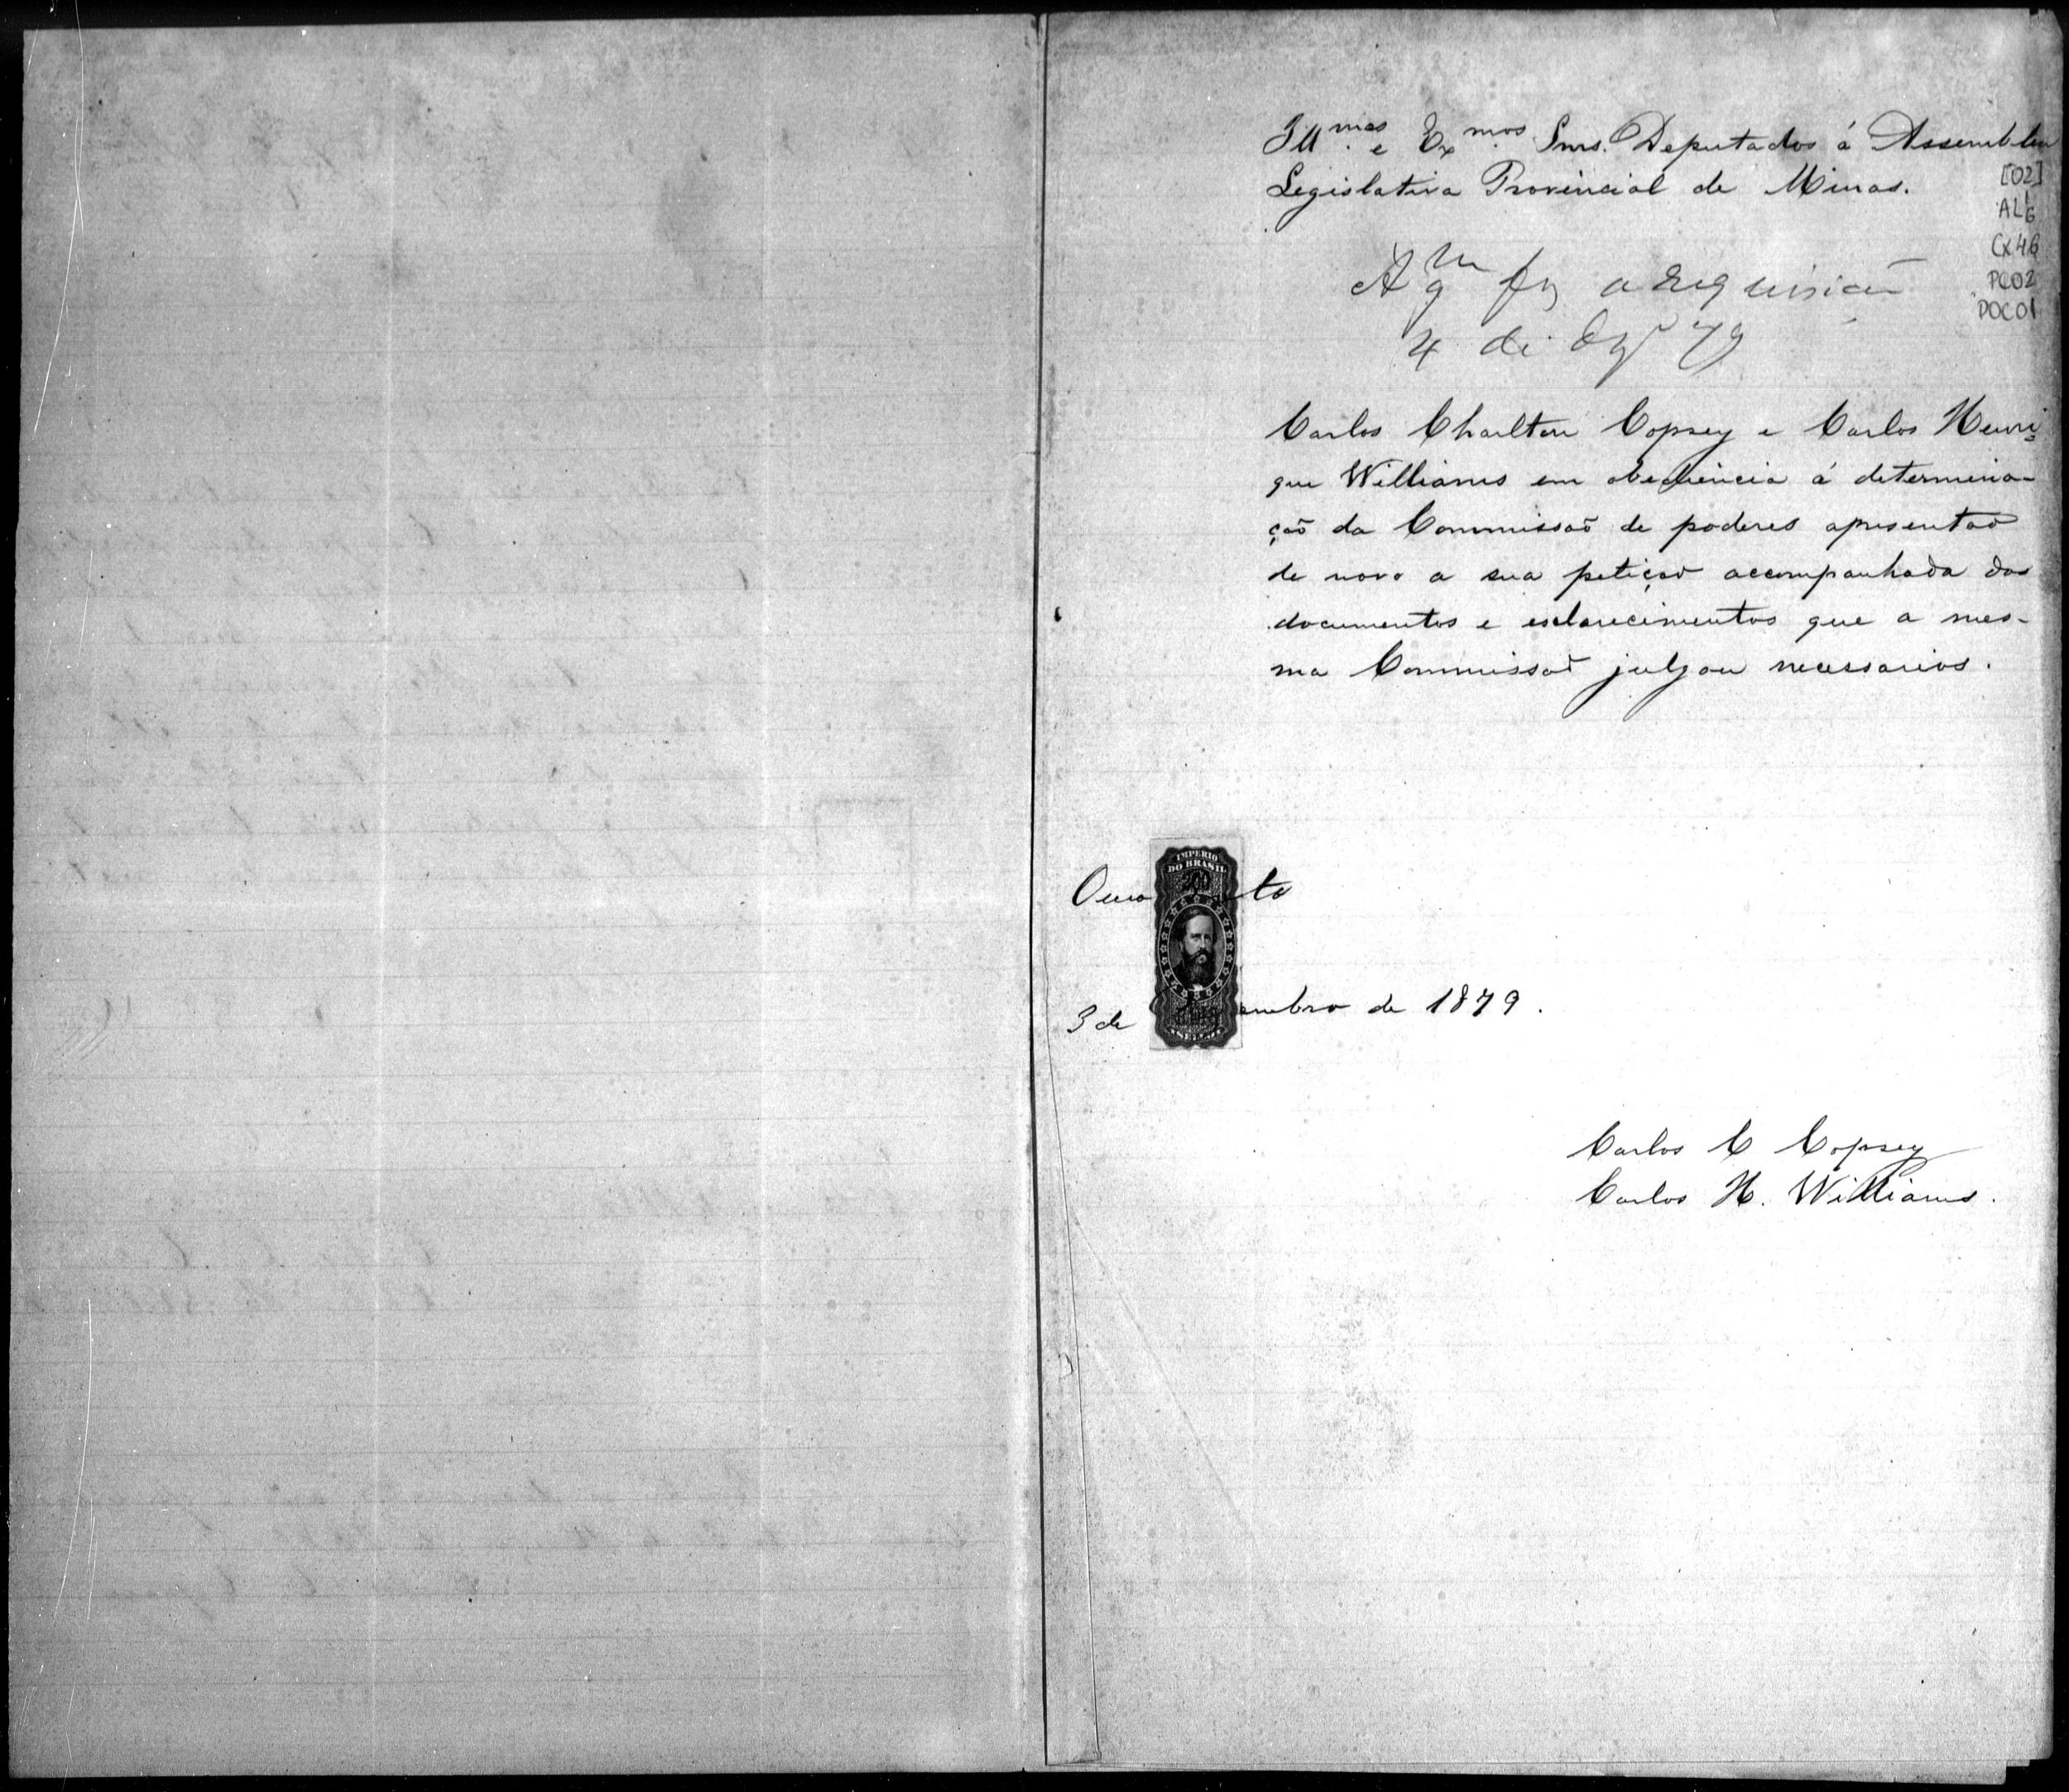 Ill.mos e Ex.mos Snrs. Deputados á Assemblea
Legislativa Provincial de Minas.
[02]
AL
CX46
PC02
DOC01
A q.m fez a requisição
4 de Dzº 79
Carlos Charlton Copsey e Carlos Henri=
que Williams em obediencia á determina-
ção da Commissaõ de poderes apresentaõ
de novo a sua petiçaõ accompanhada dos
documentos e esclarecimentos que a mes-
ma Commissaõ julgou necessarios.
IMPERIO
DO BRASIL
200
Ouro to
3 de embro de 1879.
Carlos C Copsey
Carlos H. Williams.